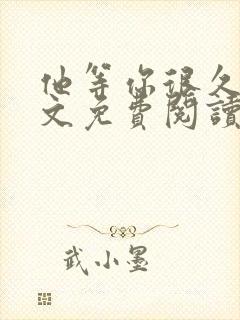 他等你很久
文免費閱讀
武小墨